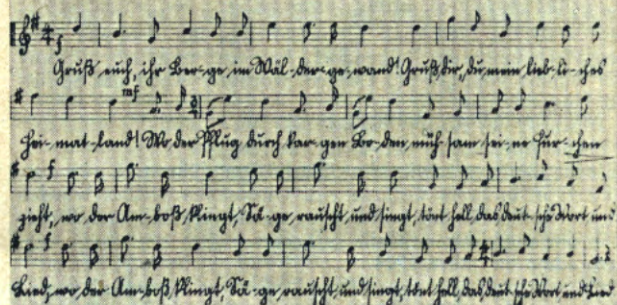 f
Grüß euch, ihr Ber-ge im Wäl-der-ge-wand! Grüß dir, du mein lieb-li-ches
mf
Hei-mat-land! Wo der Pflug durch kar-gen Bo-den, müh-sam sei-ne Fur-chen
f
zieht, wo der Am-boß klingt, Sä-ge rauscht und singt, tönt hell das deut-sche Wort und
f
Lied, wo der Am-boß klingt, Sä-ge rauscht und singt, tönt hell das deut-sche Wort und Lied